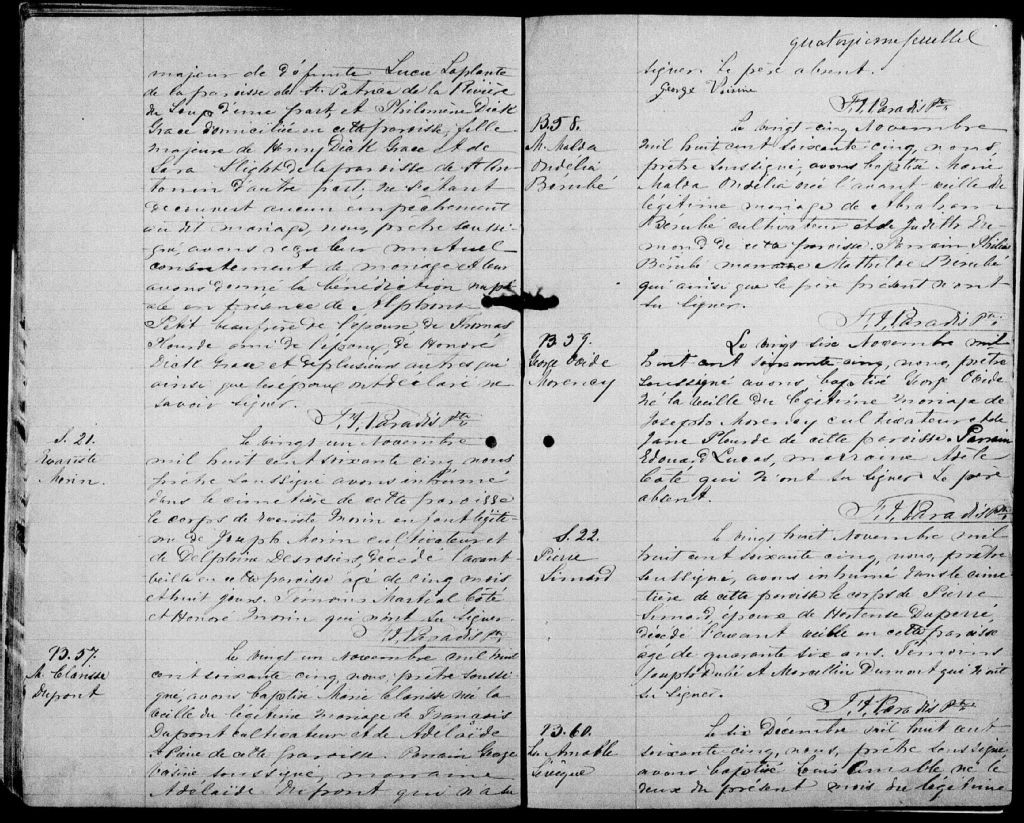 majeur de défunte Lucie Laplante
de la paroisse de St. Patrice de la Rivière
du Loup d'une part, et Philomène Dick
Grace domiciliée en cette paroisse, fille
majeure de Henry Dick Grace et de
Sara Slight de la paroisse de St An
tonin d'autre part, ne s'étant
découvert aucun empêchement
au dit mariage, nous, prêtre soussi-
gné, avons reçu leur mutuel
consentement de mariage et leur
avons donné la bénédiction nupti
ale en présence de Alphonse
Petit beaufrère de l'épouse, de Thomas
Plourde ami de l'époux, de Honoré
Dick Grace et de plusieurs autres qui
ainsi que les époux ont déclaré ne
savoir signer.
F. J. Paradis Ptre
S. 21.
Evariste
Morin.
Le vingt un Novembre
mil huit cent soixante cinq nous
prêtre soussigné avons inhumé
dans le cimetière de cette paroisse
le corps de Evariste Morin enfant légiti-
me de Joseph Morin cultivateur et
de Delphine Desrosiers, décédé l'avant
veille en cette paroisse âgé de cinq mois
et huit jours. Témoins Martial Côté
et Honoré Morin qui n'ont su signer.
F. J. Paradis Ptre
B. 57.
M. Clarisse
Dupont
Le vingt un Novembre mil huit
cent soixante cinq, nous, prêtre soussi-
gné, avons baptisé Marie Clarisse née la
veille du légitime mariage de François
Dupont cultivateur et de Adélaïde
de cette paroisse. Parrain George
Voisine, soussigné, marraine
Adélaïde Dupont qui n'a su
quatorzième feuillet
signer. Le père absent.
George Voisine
F. J. Paradis Ptre
B. 58.
M. Malda
Ondélia
Bérubé
Le vingt-cinq Novembre
mil huit cent soixante cinq, nous,
prêtre soussigné, avons baptisé Marie
Malda Ondélia née l'avant veille du
légitime mariage de Abraham
Bérubé cultivateur et de Judith Du-
mond de cette paroisse. Parrain
Bérubé marraine Mathilde Bérubé
qui ainsi que le père présent n'ont
su signer.
F. J. Paradis Ptre
B. 59.
George Ovide
Morency
Le vingt six Novembre mil
huit cent soixante cinq, nous, prêtre
soussigné avons baptisé George Ovide
né la veille du légitime mariage de
Joseph Morency cultivateur et de
Jane Plourde de cette paroisse. Parrain
Edouard Lucas, marraine Adèle
Côté qui n'ont su signer. Le père
absent.
F. J. Paradis Ptre
S. 22.
Pierre
Simard
Le vingt huit Novembre mil
huit cent soixante cinq, nous, prêtre
soussigné, avons inhumé dans le cime
tière de cette paroisse le corps de Pierre
Simard, époux de Hortense Duperré
décédé l'avant veille en cette paroisse
âgé de quarante six ans. Témoins
Joseph Dubé et Marcellin Dumont qui n'ont
su signer.
F. J. Paradis Ptre
B. 60.
Ls Amable
Levêque
Le six Décembre mil huit cent
soixante cinq, nous, prêtre soussigné
avons baptisé Louis Amable, né le
deux du présent mois du légitime